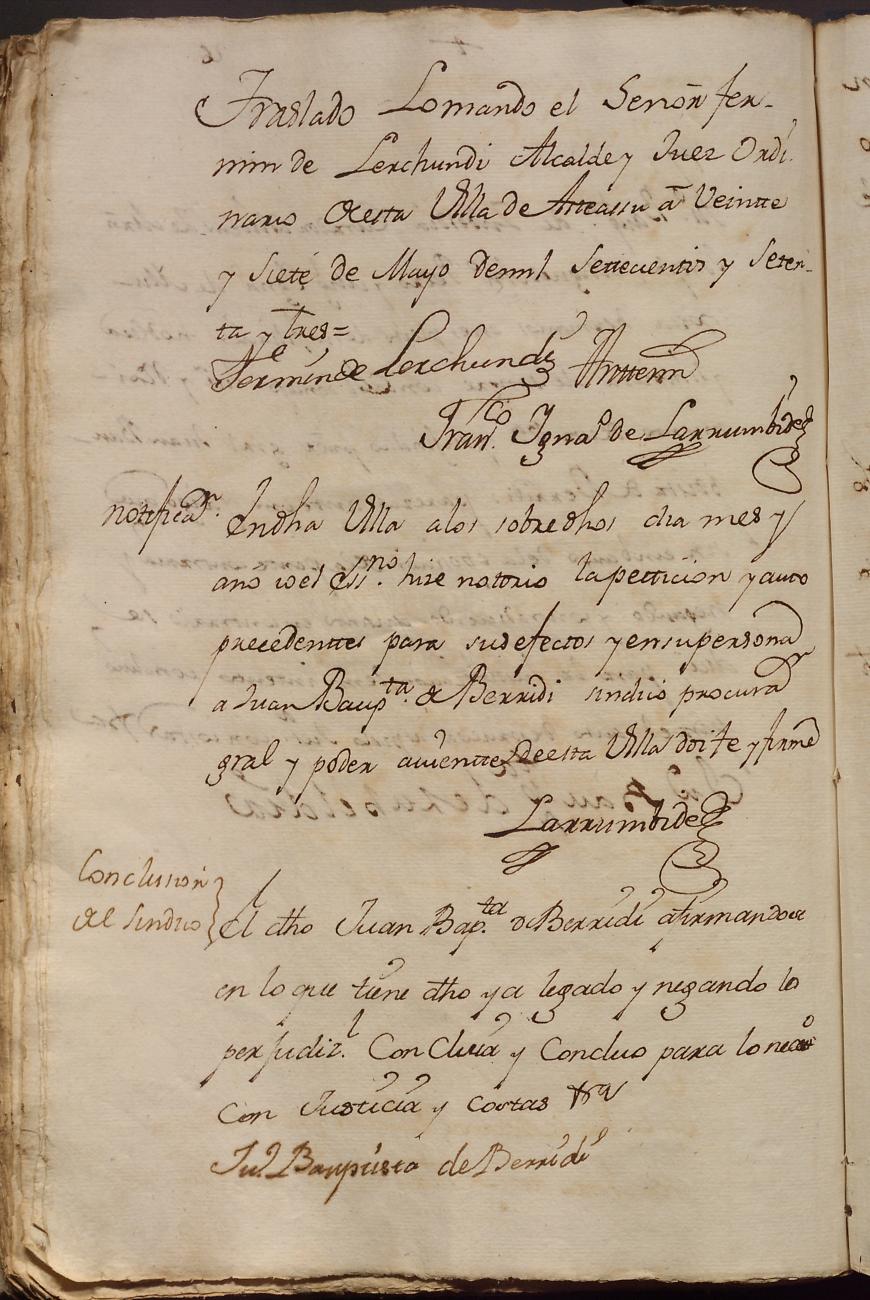 Traslado Lo mando el Señor fer-
min de Lerchundi Alcalde y Juez Ordi-
nario desta Villa de Asteassu â Veintte
y Siete de Mayo de mil Settecientos y Seten-
ta y tres=
Fermin de Lerchundi Antte mi
Franco. Ignao. de Larrumbide
notificaon. En dha Villa a los sobre dhos dia mes y
año io el Essno. hise nottorio la pettición y auto
precedenttes para sus efectos y en su persona
a Juan Baupta. de Berridi sindico procurador
gral y poder avienttes de esta Villa doi fe y firme
Larrumbide
Conclusion
del sindico
El dho Juan Bapta. de Berridi afirmandose
en lo que tiene dho y a legado y negando lo
perjudizl. Concluia y Concluio para lo neco
Con Justicia y costas
Jun. Baupista de Berridi